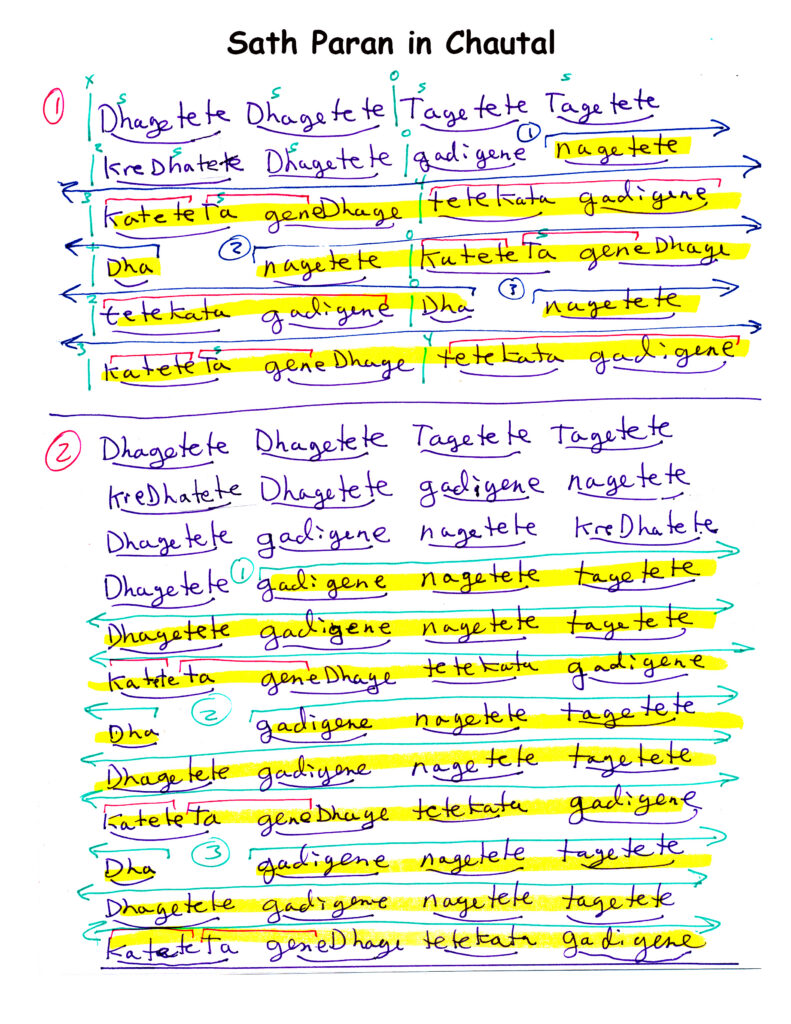 Sath Paran in Chautal
x s s 0 s s
① Dhagetete Dhagetete Tagetete Tagetete
2 s s 0 ①
KreDhatete Dhagetete gadigene nagetete
3 s 4
kateteTa geneDhage tetekata gadigene
+ ② 0 s
Dha nagetete kateteTa geneDhage
2 0 ③
tetekata gadigene Dha nagetete
3 s 4
kateteTa geneDhage tetekata gadigene
② Dhagetete Dhagetete Tagetete Tagetete
KreDhatete Dhagetete gadigene nagetete
Dhagetete gadigene nagetete KreDhatete
Dhagetete ① gadigene nagetete tagetete
Dhagetete gadigene nagetete tagetete
Kateteta geneDhage tetekata gadigene
Dha ② gadigene nagetete tagetete
Dhagetete gadigene nagetete tagetete
KateteTa geneDhage tetekata gadigene
Dha ③ gadigene nagetete tagetete
Dhagetete gadigene nagetete tagetete
KateteTa geneDhage tetekata gadigene